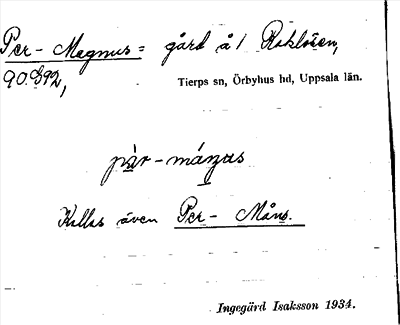 Per-Magnus= gård å 1 Roklösen,
90.G92,
Tierps sn, Örbyhus hd, Uppsala län.
pär-mángus
Kallas även Per- Måns.
Ingegärd Isaksson 1934.